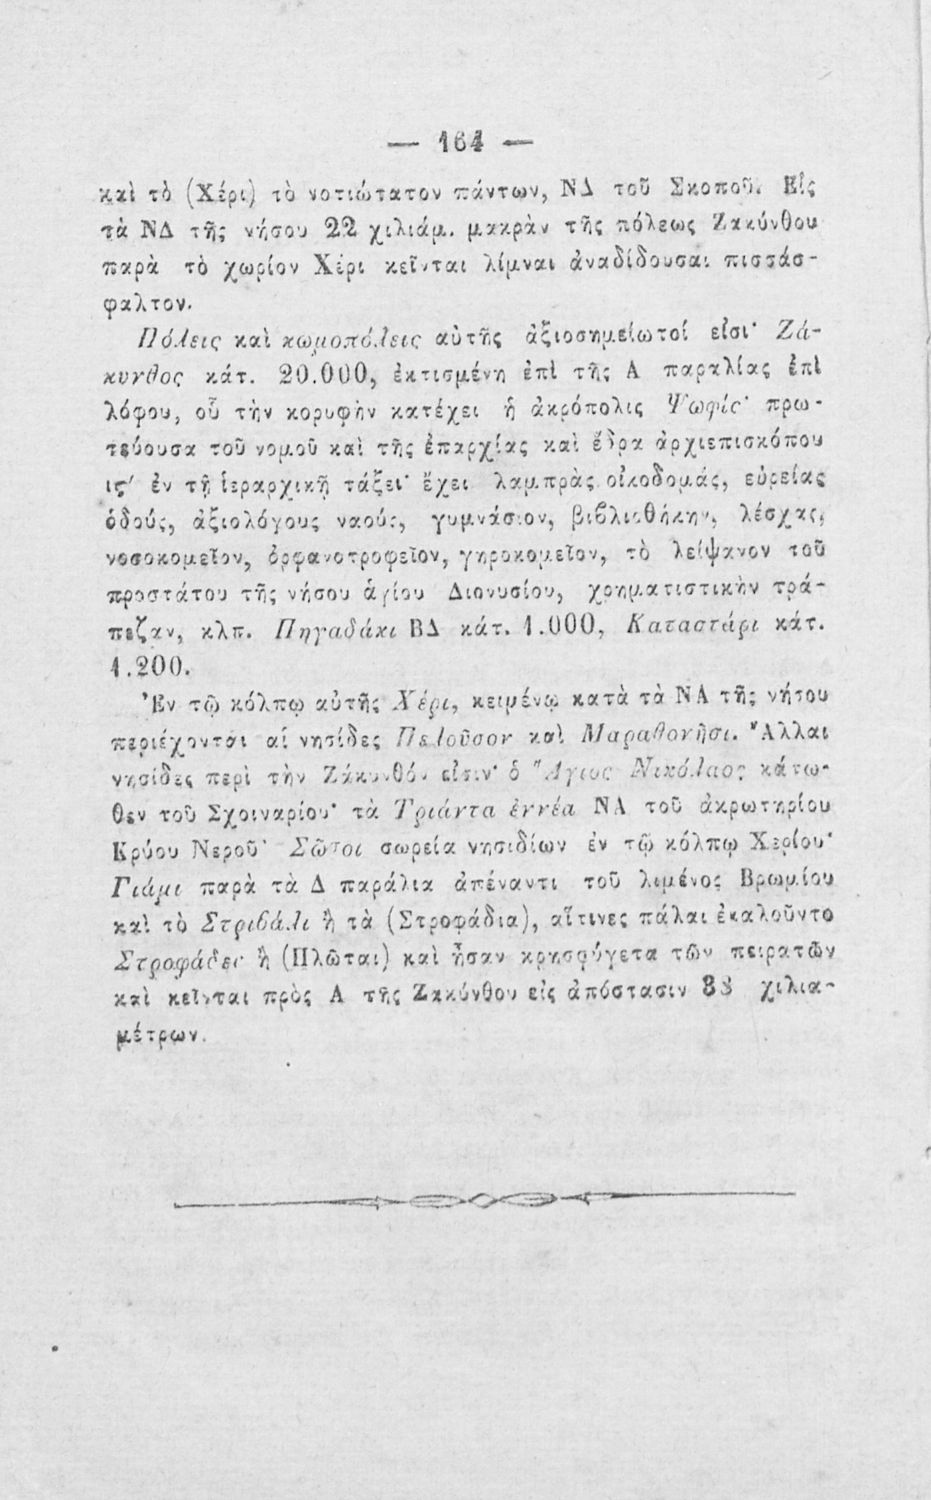 — 164 —
καὶ τὸ (Χέρι) τὸ νοτιώτατον πάντων, ΝΔ τοῦ Σκοποῦ. Εἰς
τὰ ΝΔ τῆς νήσου 22 χιλιάμ. μακρὰν τῆς πόλεως Ζακύνθου
παρὰ τὸ χωρίον Χέρι κεῖνται λίμναι ἀναδίδουσαι πισσάσ-
φαλτον.
Πόλεις καὶ κωμοπόλεις αὐτῆς ἀξιοσημείωτοί εἰσι· Ζά-
κυνθος κάτ. 20.000, ἐκτισμένη ἐπὶ τῆς Α παραλίας ἐπὶ
λόφου, οὗ τὴν κορυφὴν κατέχει ἡ ἀκρόπολις Ψωφίς· πρω-
τεύουσα τοῦ νομοῦ καὶ τῆς ἐπαρχίας καὶ ἕδρα ἀρχιεπισκόπου
ις′ ἐν τῇ ἱεραρχικῇ τάξει· ἔχει λαμπρὰς οἰκοδομάς, εὐρείας
ὁδούς, ἀξιολόγους ναούς, γυμνάσιον, βιβλιοθήκην, λέσχας,
νοσοκομεῖον, ὀρφανοτροφεῖον, γηροκομεῖον, τὸ λείψανον τοῦ
προστάτου τῆς νήσου ἁγίου Διονυσίου, χρηματιστικὴν τρά-
πεζαν, κλπ. Πηγαδάκι ΒΔ κάτ. 1.000, Καταστάρι κάτ.
1.200.
Ἐν τῷ κόλπῳ αὐτῆς Χέρι, κειμένῳ κατὰ τὰ ΝΑ τῆς νήσου
περιέχονται αἱ νησίδες Πελοῦσον καὶ Μαραθονῆσι. Ἄλλαι
νησίδες περὶ τὴν Ζάκυνθόν εἰσιν· ὁ Ἅγιος Νικόλαος κάτω-
θεν τοῦ Σχοιναρίου· τὰ Τριάντα ἐννέα ΝΑ τοῦ ἀκρωτηρίου
Κρύου Νεροῦ· Σῶτοι σωρεία νησιδίων ἐν τῷ κόλπῳ Χερίου·
Γιάμι παρὰ τὰ Δ παράλια ἀπέναντι τοῦ λιμένος Βρωμίου
καὶ τὸ Στριβάλι ἢ τὰ (Στροφάδια), αἵτινες πάλαι ἐκαλοῦντο
Στροφάδες ἢ (Πλῶται) καὶ ἦσαν κρησφύγετα τῶν πειρατῶν
καὶ κεῖνται πρὸς Α τῆς Ζακύνθου εἰς ἀπόστασιν χιλια-
μέτρων.